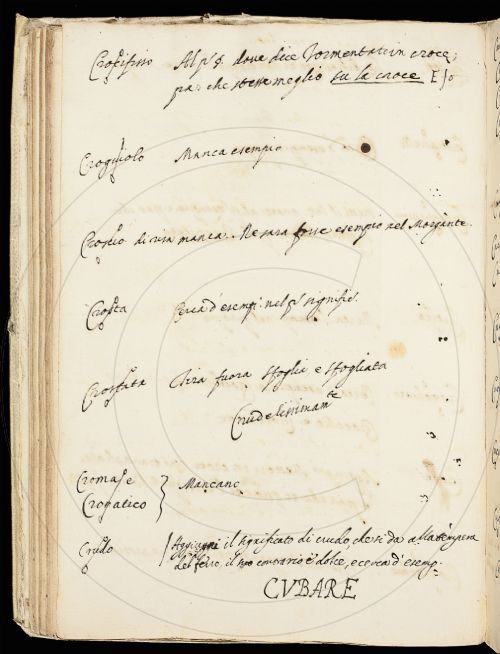 Crocifisso Al p.º §. dove dice Tormentate in croce;
par che stesse meglio su la croce
Crogiuolo Manca esempio
Croscio di risa manca. Ne sarà forse esempio nel Morgante.
Crosta Cerca d'esempi nel pº signific.
Crostata Tira fuora Sfoglia e Sfogliata
Crudelissimamte
Croma, e
Crogatico } Mancano
Crudo Aggiugni il significato di crudo che si da alla tempera
del ferro, il suo contrario è dolce, e cerca d'esemp.
CVBARE